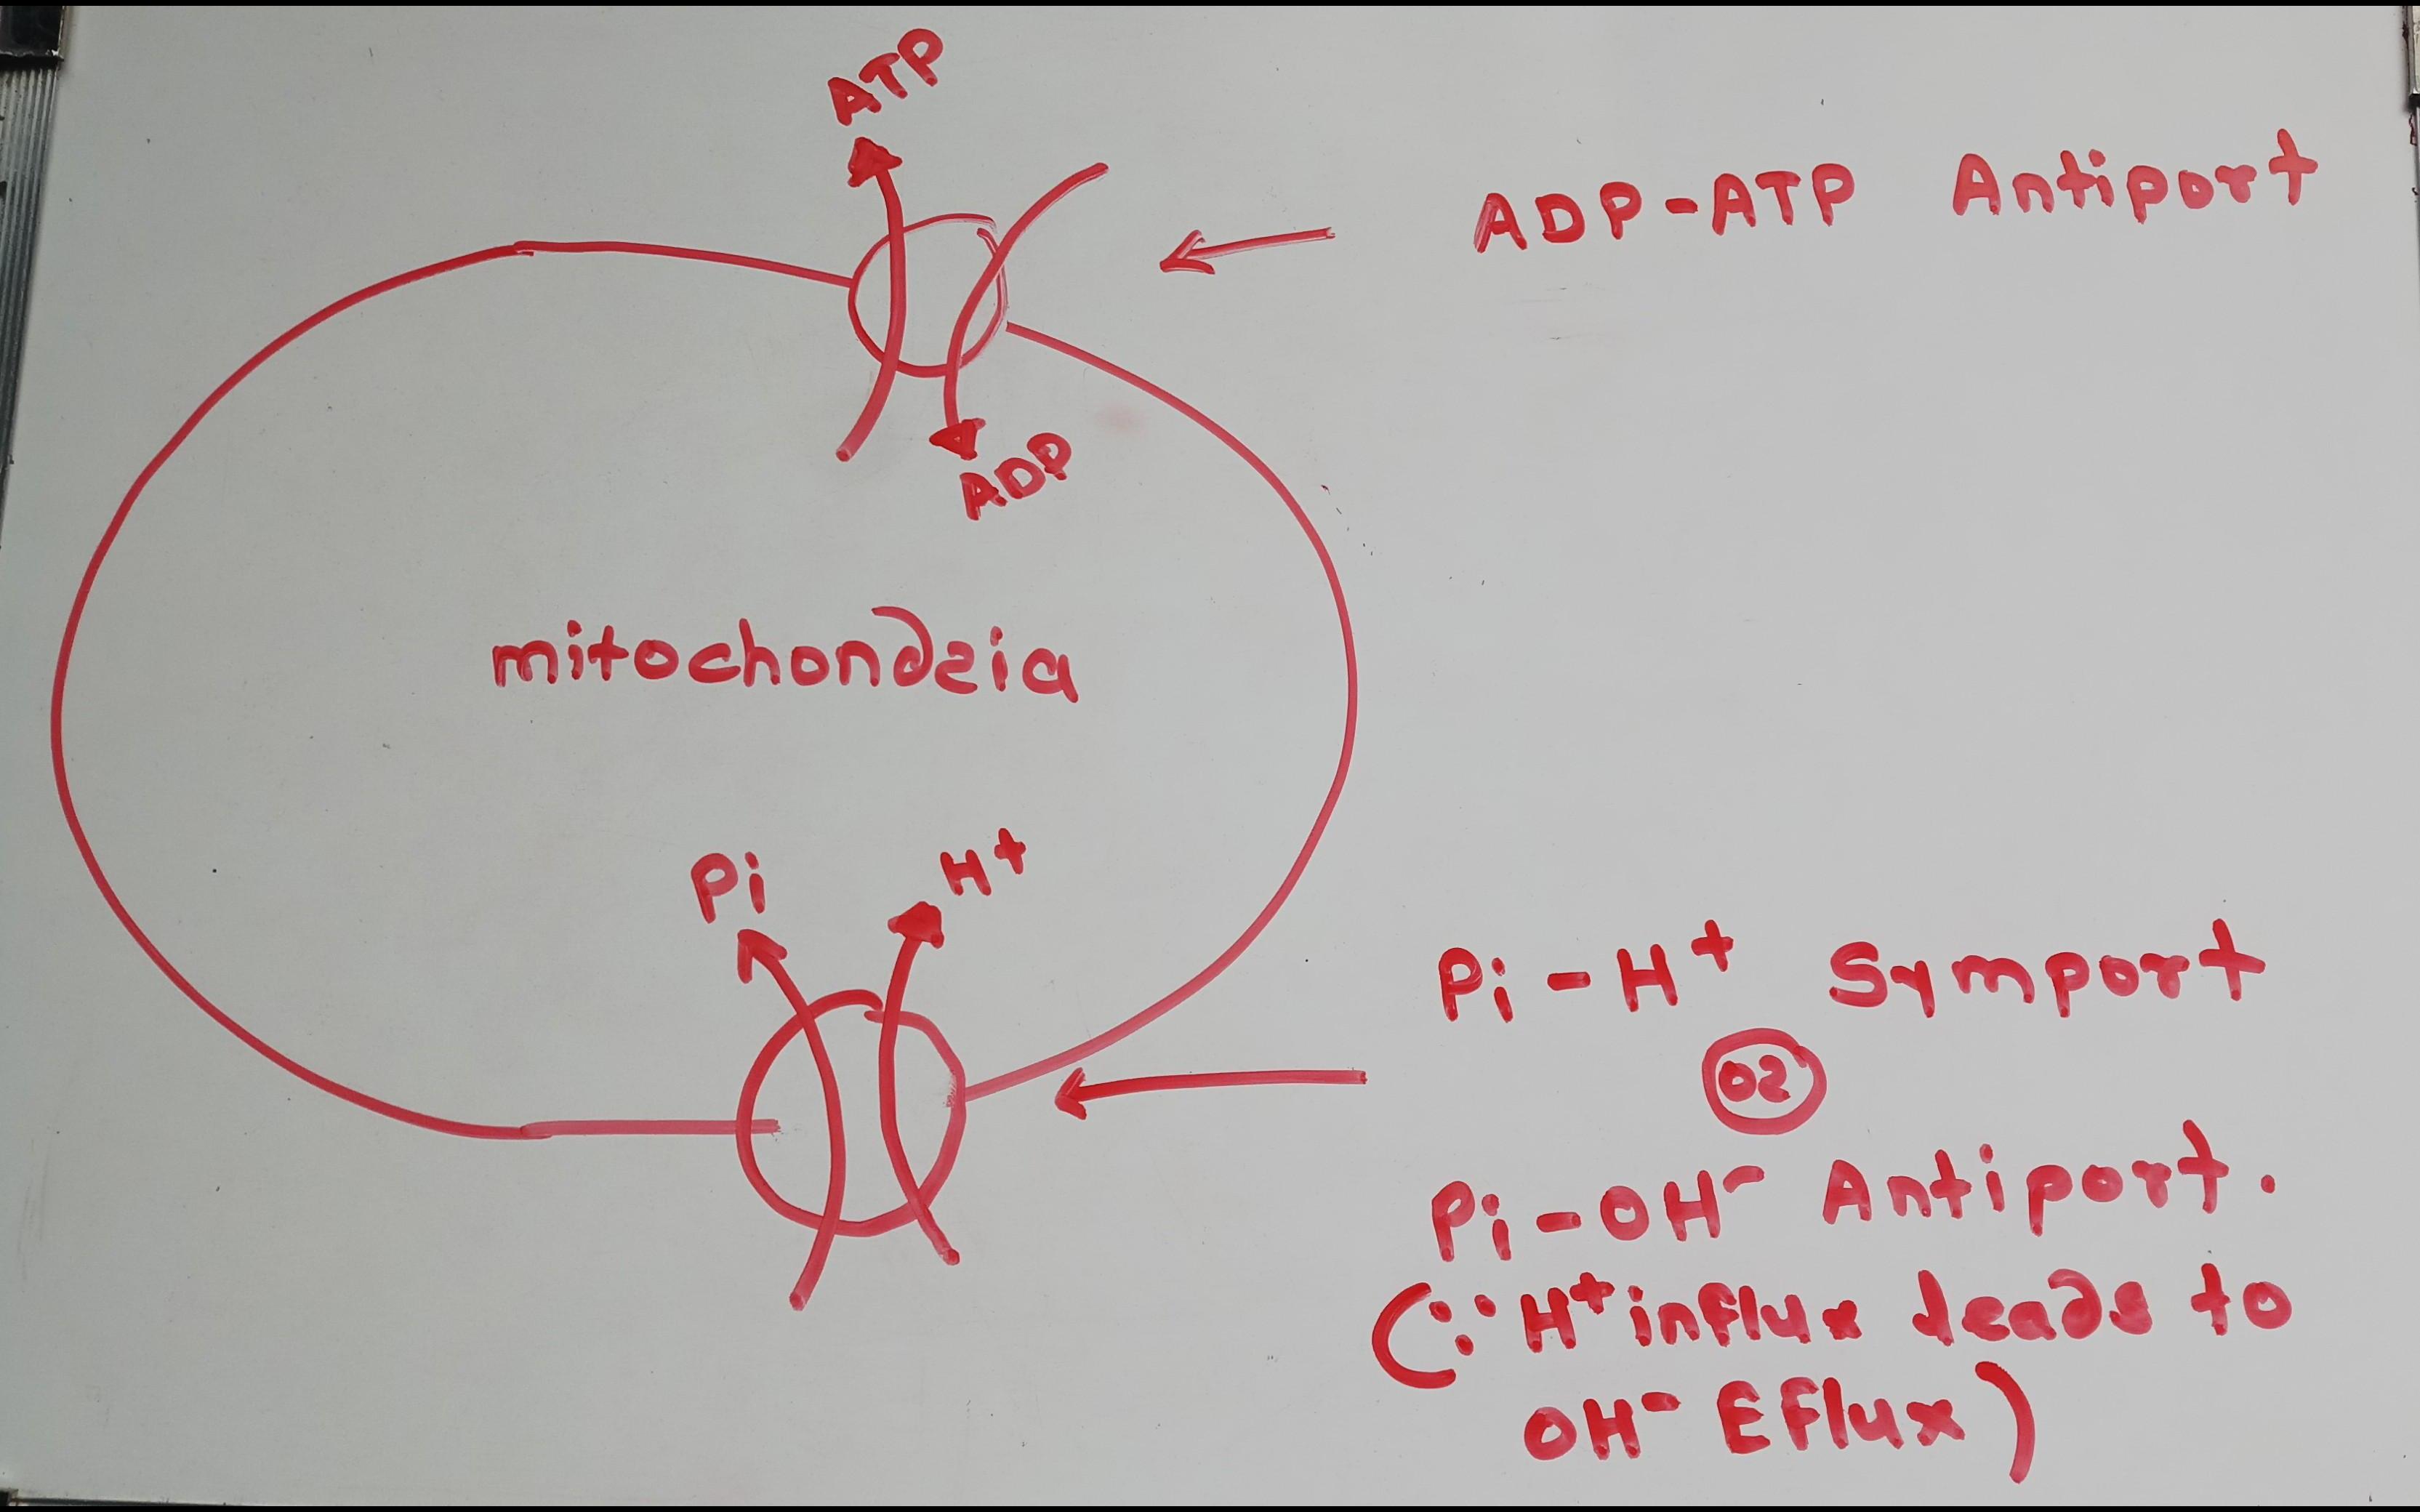 ATP
ADP-ATP Antiport
ADP
mitochondria
Pi
H+
Pi-H+ Symport
or
Pi-OH- Antiport.
(∵ H+ influx leads to
OH- Eflux)